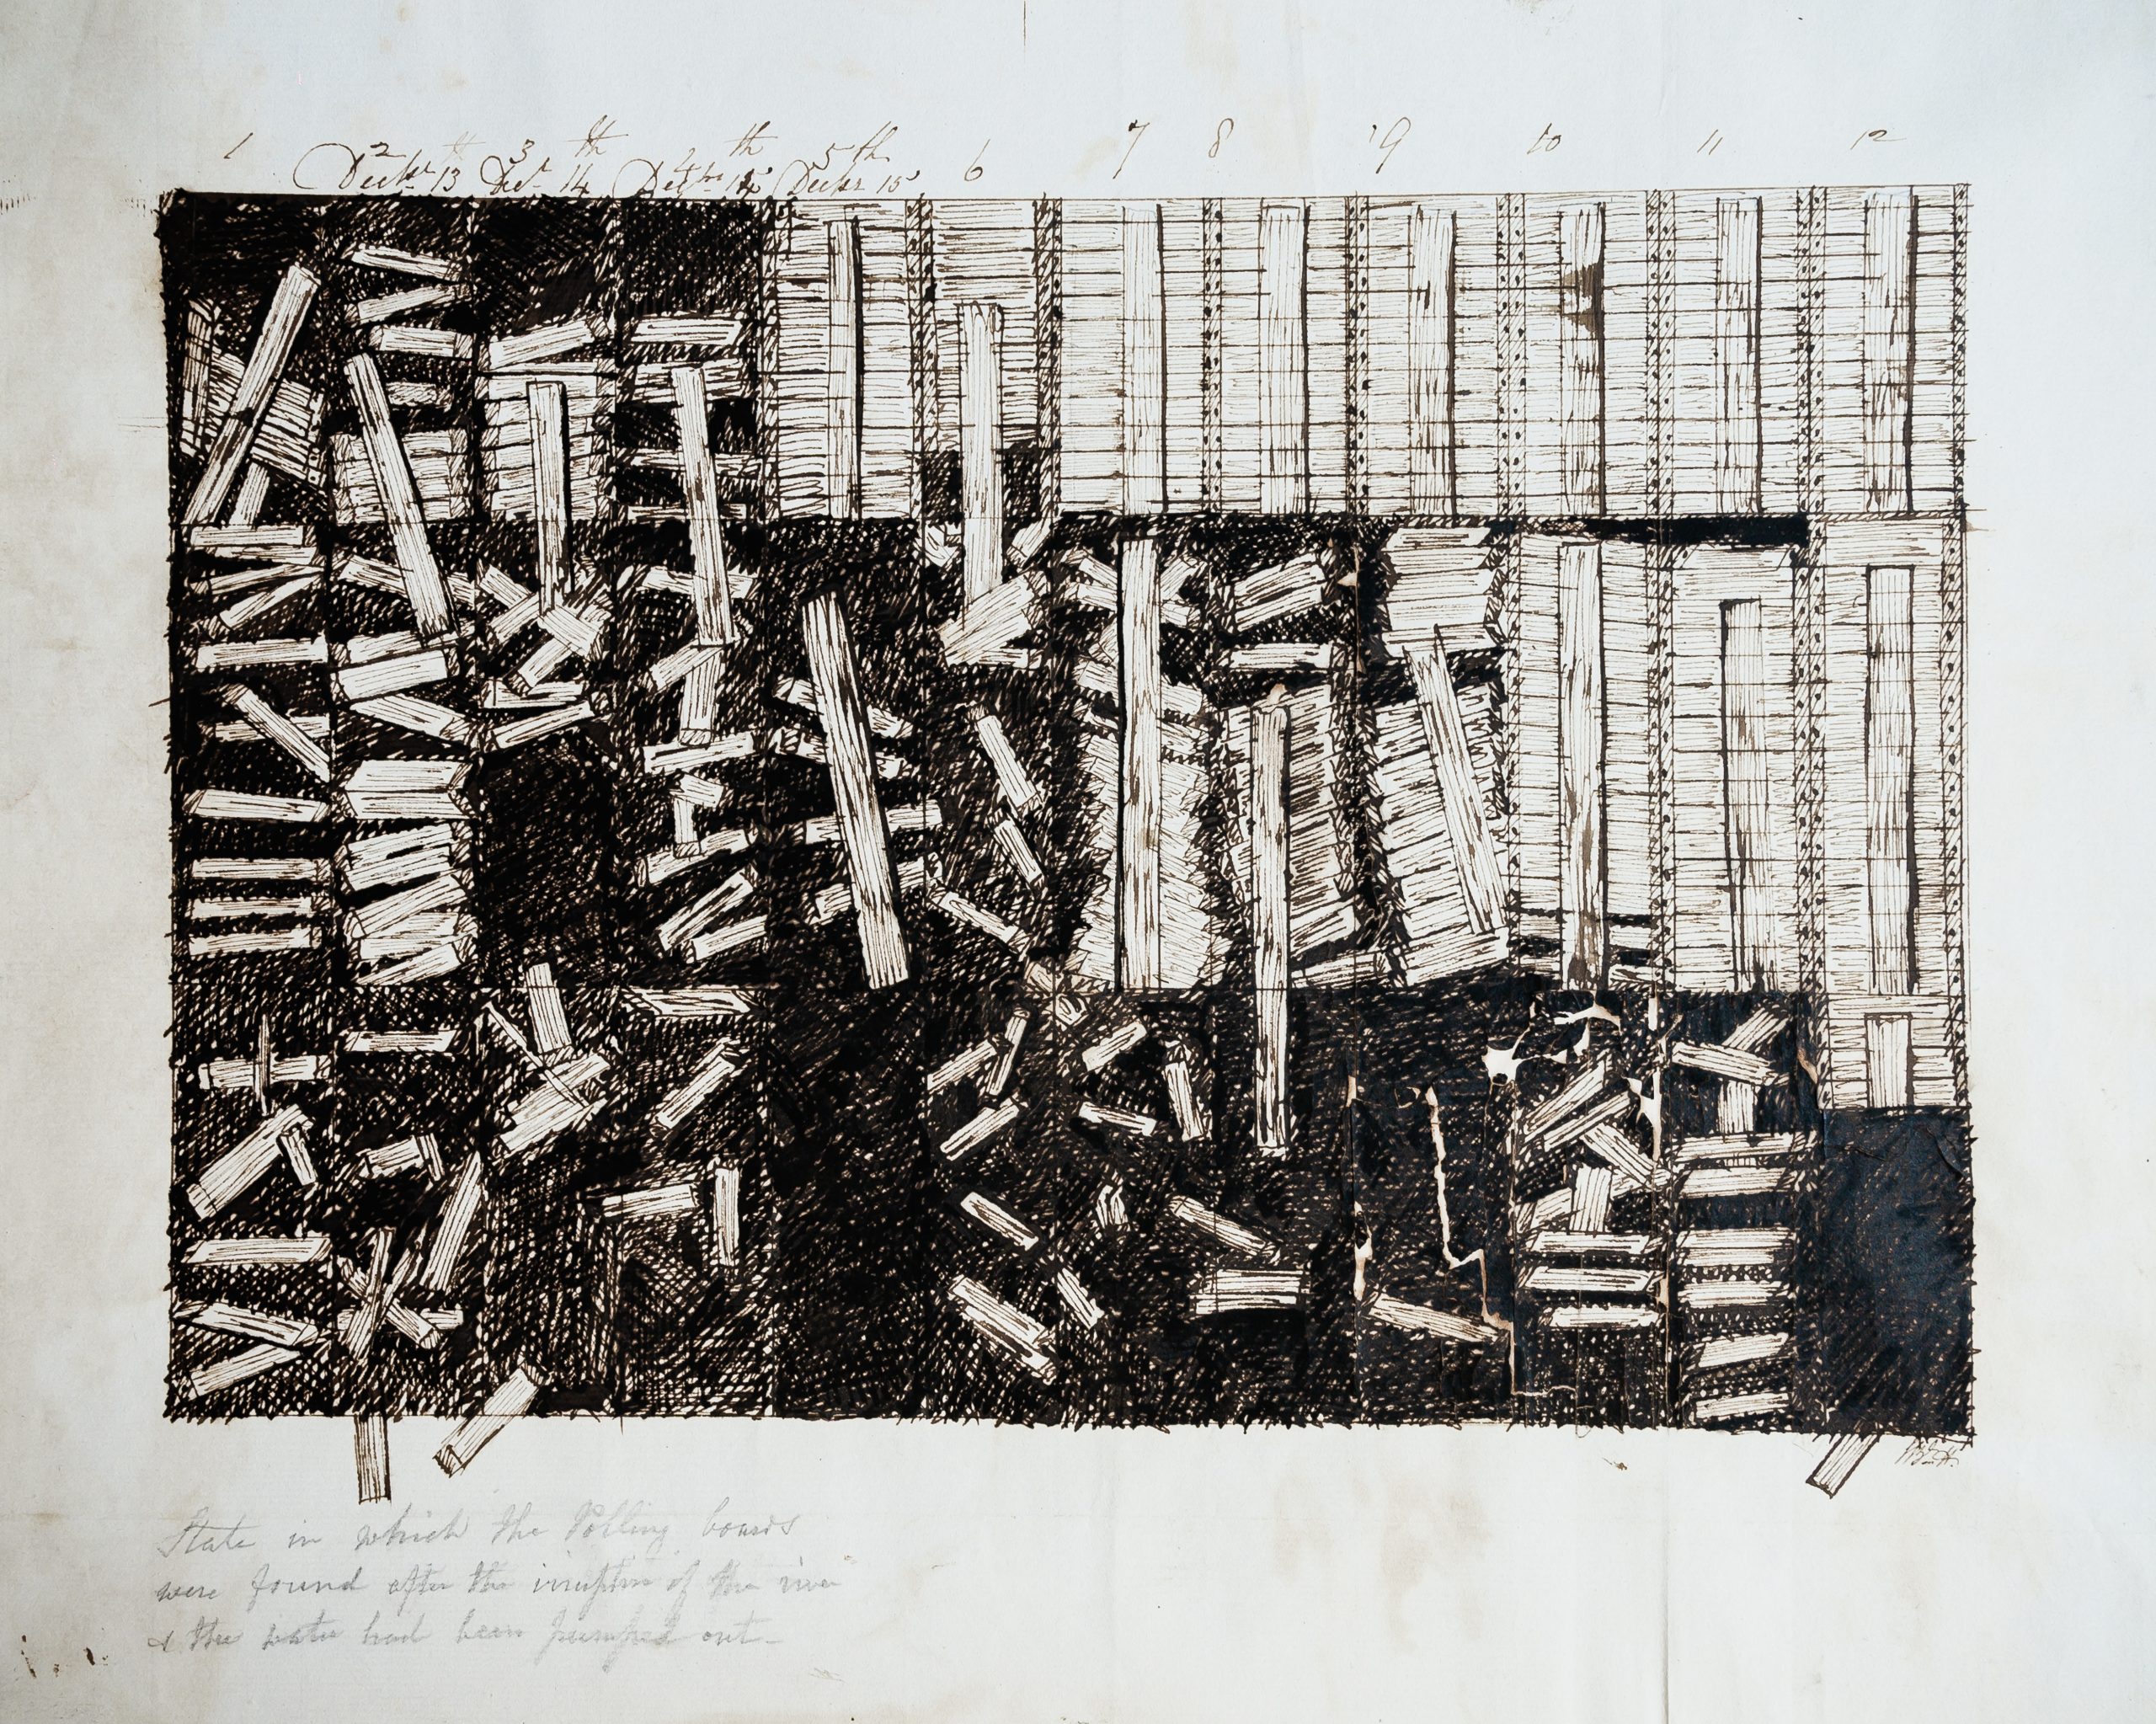 1 2 3 th th 5 th 6 7 8 9 10 11 12
Decbr 13 Decr 14 15 Decbr 15
State in which the Polling boards
were found after the irruption of the river
& the water had been pumped out-